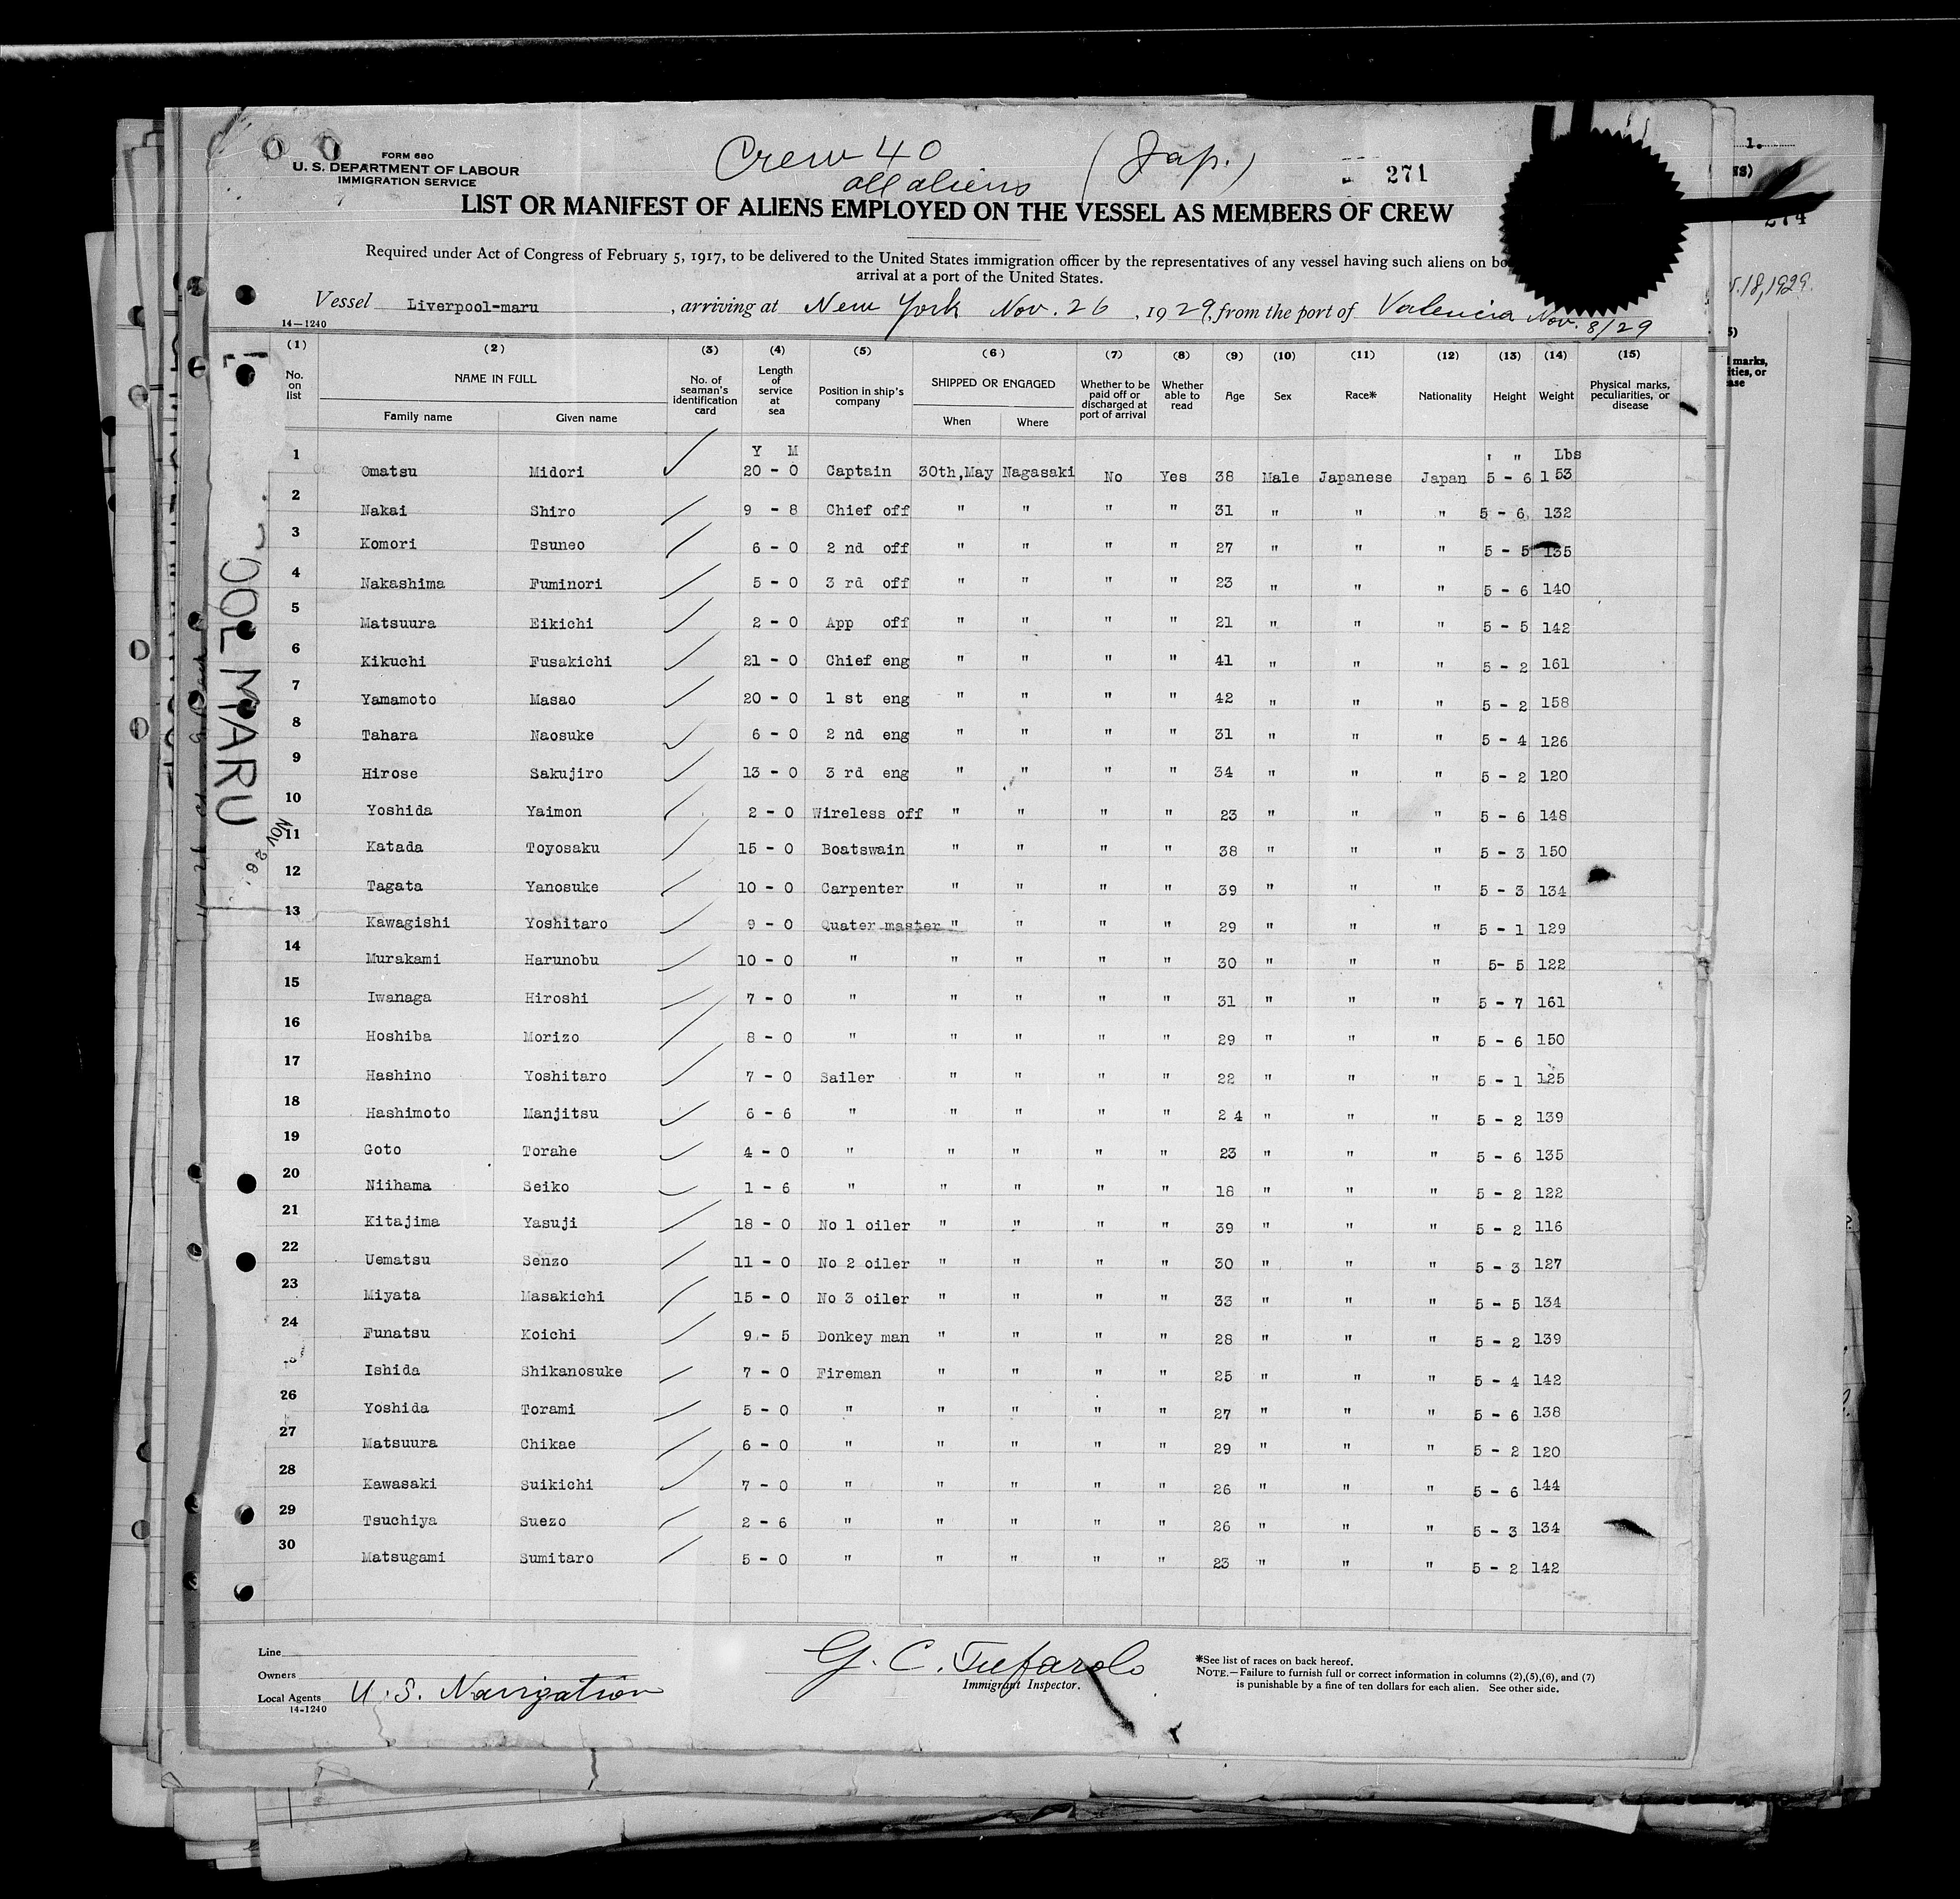 Crew 40 (Jap.)
all aliens
FORM 680
U. S. DEPARTMENT OF LABOUR
IMMIGRATION SERVICE
271
LIST OR MANIFEST OF ALIENS EMPLOYED ON THE VESSEL AS MEMBERS OF CREW
Required under Act of Congress of February 5, 1917, to be delivered to the United States immigration officer by the representatives of any vessel having such aliens on
arrival at a port of the United States.
Vessel Liverpool-maru , arriving at New York Nov. 26 , 1929, from the port of Valencia Nov. 8/29
14—1240
(1) (2) (3) (4) (5) (6) (7) (8) (9) (10) (11) (12) (13) (14) (15)
No. on list NAME IN FULL Family name Given name No. of seaman's identification card Length of service at sea Position in ship's company SHIPPED OR ENGAGED When Where Whether to be paid off or discharged at port of arrival Whether able to read Age Sex Race* Nationality Height Weight Physical marks, peculiarities, or disease
Y M ' " Lbs
1 Omatsu Midori 20 - 0 Captain 30th,May Nagasaki No Yes 38 Male Japanese Japan 5 - 6 153
2 Nakai Shiro 9 - 8 Chief off " " " " 31 " " " 5 - 6 132
3 Komori Tsuneo 6 - 0 2 nd off " " " " 27 " " " 5 - 5 135
4 Nakashima Fuminori 5 - 0 3 rd off " " " " 23 " " " 5 - 6 140
5 Matsuura Eikichi 2 - 0 App off " " " " 21 " " " 5 - 5 142
6 Kikuchi Fusakichi 21 - 0 Chief eng " " " " 41 " " " 5 - 2 161
7 Yamamoto Masao 20 - 0 1 st eng " " " " 42 " " " 5 - 2 158
8 Tahara Naosuke 6 - 0 2 nd eng " " " " 31 " " " 5 - 4 126
9 Hirose Sakujiro 13 - 0 3 rd eng " " " " 34 " " " 5 - 2 120
10 Yoshida Yaimon 2 - 0 Wireless off " " " " 23 " " " 5 - 6 148
11 Katada Toyosaku 15 - 0 Boatswain " " " " 38 " " " 5 - 3 150
12 Tagata Yanosuke 10 - 0 Carpenter " " " " 39 " " " 5 - 3 134
13 Kawagishi Yoshitaro 9 - 0 Quater master " " " " 29 " " " 5 - 1 129
14 Murakami Harunobu 10 - 0 " " " " " 30 " " " 5- 5 122
15 Iwanaga Hiroshi 7 - 0 " " " " " 31 " " " 5 - 7 161
16 Hoshiba Morizo 8 - 0 " " " " " 29 " " " 5 - 6 150
17 Hashino Yoshitaro 7 - 0 Sailer " " " " 22 " " " 5 - 1 125
18 Hashimoto Manjitsu 6 - 6 " " " " " 2 4 " " " 5 - 2 139
19 Goto Torahe 4 - 0 " " " " " 23 " " " 5 - 6 135
20 Niihama Seiko 1 - 6 " " " " " 18 " " " 5 - 2 122
21 Kitajima Yasuji 18 - 0 No 1 oiler " " " " 39 " " " 5 - 2 116
22 Uematsu Senzo 11 - 0 No 2 oiler " " " " 30 " " " 5 - 3 127
23 Miyata Masakichi 15 - 0 No 3 oiler " " " " 33 " " " 5 - 5 134
24 Funatsu Koichi 9 - 5 Donkey man " " " " 28 " " " 5 - 2 139
Ishida Shikanosuke 7 - 0 Fireman " " " " 25 " " " 5 - 4 142
26 Yoshida Torami 5 - 0 " " " " " 27 " " " 5 - 6 138
27 Matsuura Chikae 6 - 0 " " " " " 29 " " " 5 - 2 120
28 Kawasaki Suikichi 7 - 0 " " " " " 26 " " " 5 - 6 144
29 Tsuchiya Suezo 2 - 6 " " " " " 26 " " " 5 - 3 134
30 Matsugami Sumitaro 5 - 0 " " " " " 23 " " " 5 - 2 142
OOL MARU
Nov 26
Line
Owners
Local Agents U. S. Navigation
14-1240
G. C. Tufarolo
Immigrant Inspector.
*See list of races on back hereof.
NOTE.—Failure to furnish full or correct information in columns (2),(5),(6), and (7)
is punishable by a fine of ten dollars for each alien. See other side.
1.
274
18, 1929.
marks,